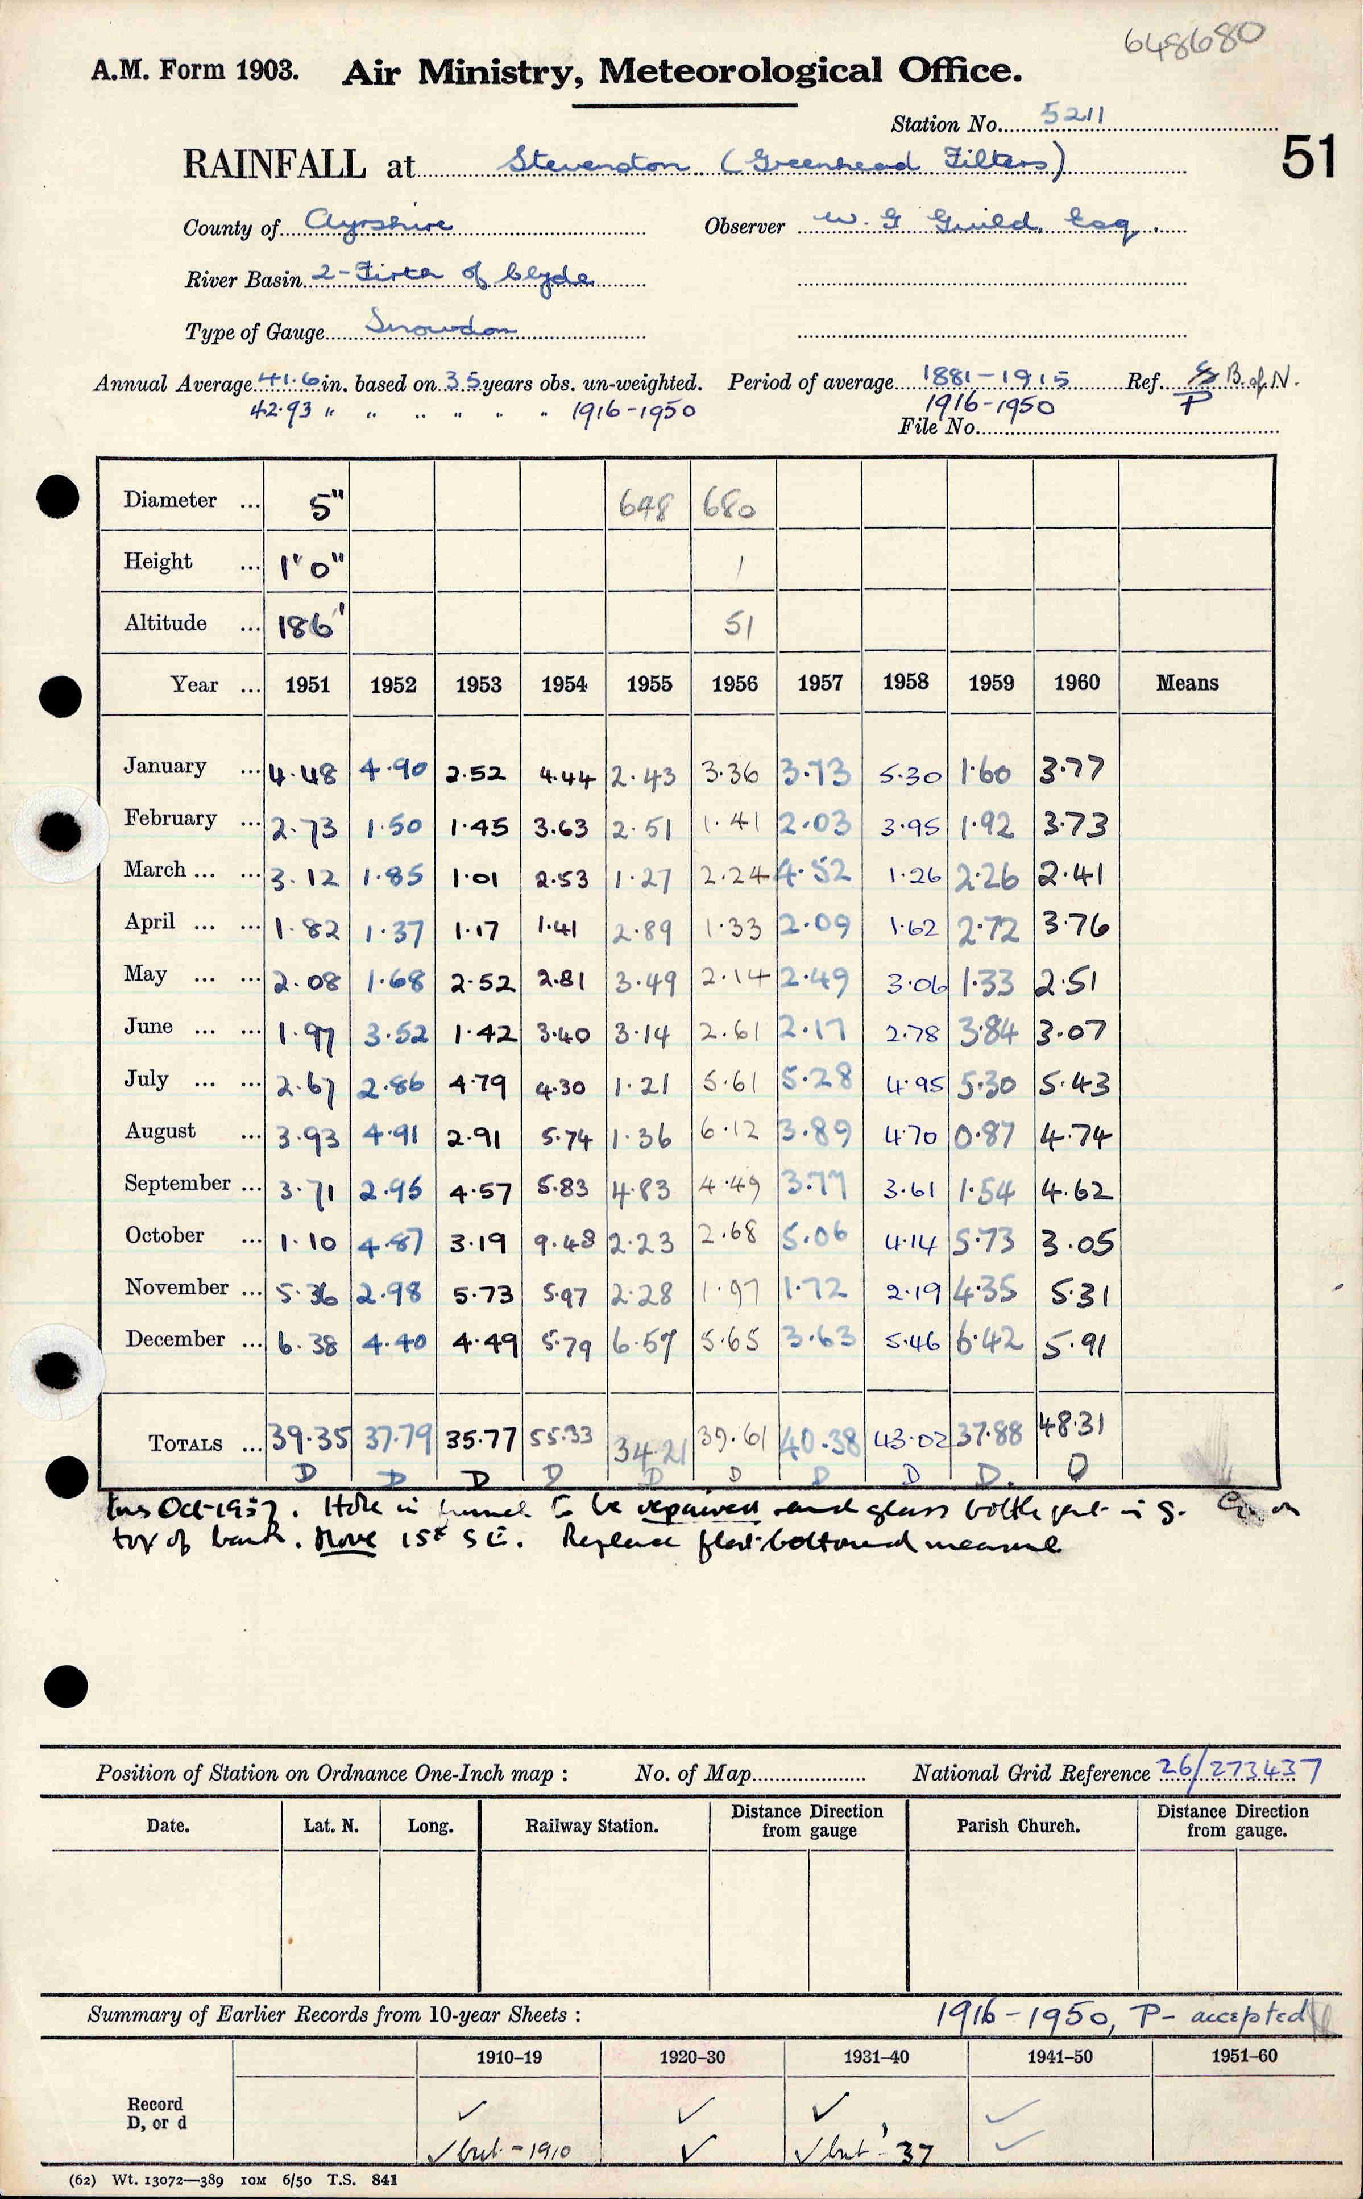 648680
A.M. Form 1903. Air Ministry, Meteorological Office.
Station No. 5211
51
RAINFALL at Stevenston (Greenhead Filters)
County of Ayrshire Observer W. G Guild. Esq.
River Basin 2-Firth of Clyde
Type of Gauge Snowdon
Annual Average 41.6 in. based on 35 years obs. un-weighted. Period of average 1881-1915 Ref. B. of N.
42.93 " " " " " " 1916-1950 1916-1950 P
File No.
Diameter ... 5" 648 680
Height ... 1' 0" 1
Altitude ... 186' 51
Year ... 1951 1952 1953 1954 1955 1956 1957 1958 1959 1960 Means
January ... 4.48 4.90 2.52 4.44 2.43 3.36 3.73 5.30 1.60 3.77
February ... 2.73 1.50 1.45 3.63 2.51 1.41 2.03 3.95 1.92 3.73
March ... ... 3.12 1.85 1.01 2.53 1.27 2.24 4.52 1.26 2.26 2.41
April ... ... 1.82 1.37 1.17 1.41 2.89 1.33 2.09 1.62 2.72 3.76
May ... ... 2.08 1.68 2.52 2.81 3.49 2.14 2.49 3.06 1.33 2.51
June ... ... 1.97 3.52 1.42 3.40 3.14 2.61 2.17 2.78 3.84 3.07
July ... ... 2.67 2.86 4.79 4.30 1.21 5.61 5.28 4.95 5.30 5.43
August ... 3.93 4.91 2.91 5.74 1.36 6.12 3.89 4.70 0.87 4.74
September ... 3.71 2.95 4.57 5.83 4.83 4.49 3.77 3.61 1.54 4.62
October ... 1.10 4.87 3.19 9.48 2.23 2.68 5.06 4.14 5.73 3.05
November ... 5.36 2.98 5.73 5.97 2.28 1.97 1.72 2.19 4.35 5.31
December ... 6.38 4.40 4.49 5.79 6.57 5.65 3.63 5.46 6.42 5.91
TOTALS ... 39.35 37.79 35.77 55.33 34.21 39.61 40.38 43.02 37.88 48.31
D D D D D D D D D. D
Ins Oct-1957. Hole in funnel to be repaired and glass bottle put in g. on
top of bank. Move 15ft SE. Replace flat-bottomed measure
Position of Station on Ordnance One-Inch map : No. of Map National Grid Reference 26/273437
Date. Lat. N. Long. Railway Station. Distance Direction from gauge Parish Church. Distance Direction from gauge.
Summary of Earlier Records from 10-year Sheets : 1916-1950, P- accepted
1910–19 1920–30 1931–40 1941–50 1951–60
Record ✓ ✓ ✓ ✓
D, or d ✓ but - 1910 ✓ ✓ but ' 37 ✓
(62) Wt. 13072—389 10M 6/50 T.S. 841